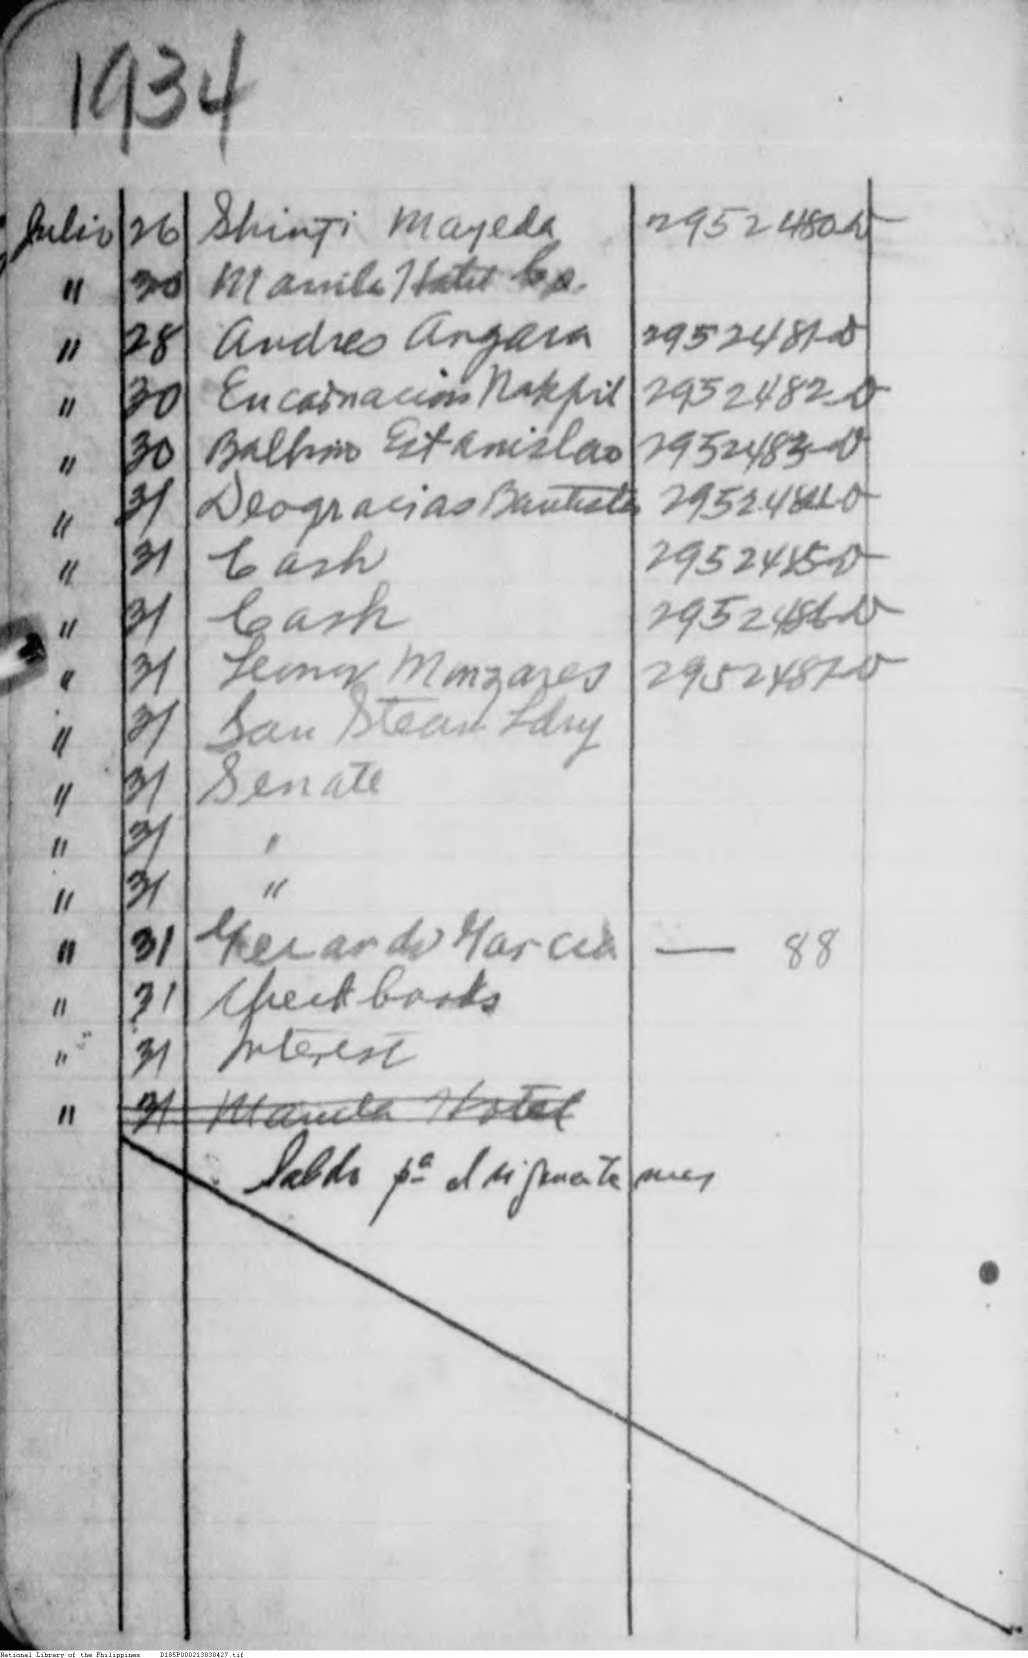 1934
Julio 26 Shinji Mayeda 2952480-D
" 30 Manila Hotel Co.
" 28 Andres Angara 2952481-D
" 30 Encarnacion Nakpil 2952482-D
" 30 Balbino Estanislao 2952483-D
" 31 Deogracias Bautista 2952484-D
" 31 Cash 2952485-D
" 31 Cash 2952486-D
" 31 Leonor Manzares 2952487-D
" 31 San Steam Ldry
" 31 Senate
" 31 "
" 31 "
" 31 Gerardo Garcia — 88
" 31 Check books
" 31 Interest
" 31 Manila Hotel
Saldo pª el siguiente mes
National Library of the Philippines D185P000213830427.tif